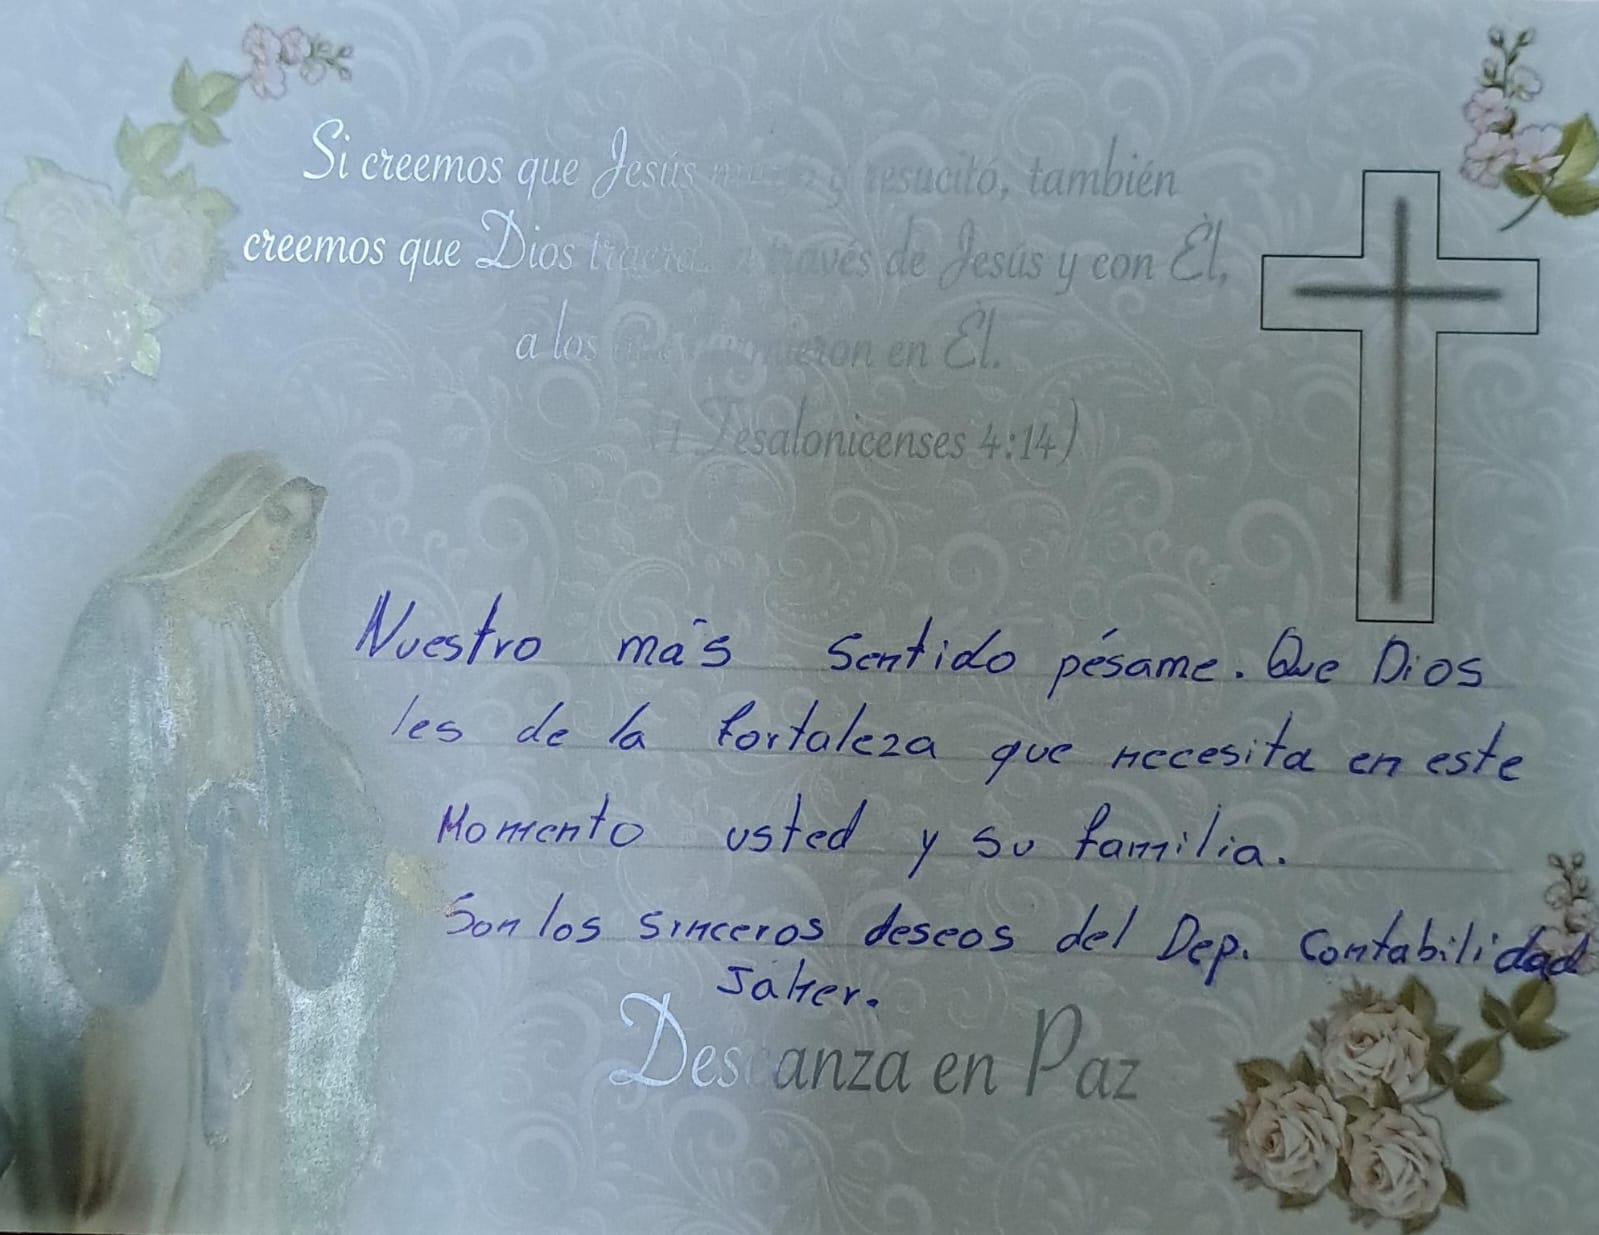 Si creemos que Jesús murió y resucitó, también
creemos que Dios traerá a través de Jesús y con Él,
a los que durmieron en Él.
(1 Tesalonicenses 4:14)
Nuestro más sentido pésame. Que Dios
les de la fortaleza que necesita en este
Momento usted y su familia.
Son los sinceros deseos del Dep. Contabilidad
Jaher.
Descanza en Paz